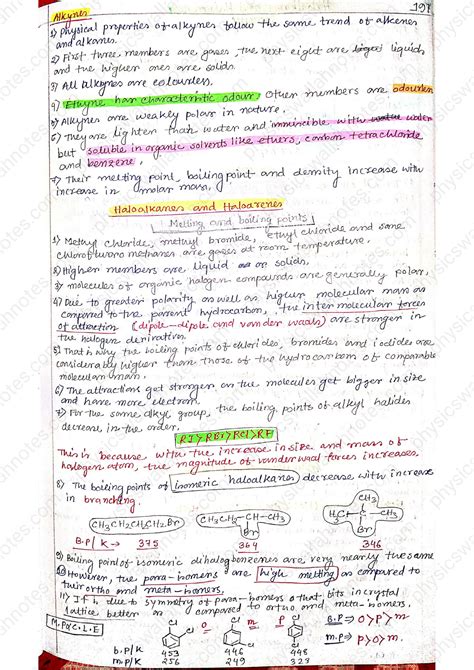 197
Alkynes
1) Physical properties of alkynes follow the same trend of alkenes
and alkanes.
2) First three members are gases, the next eight are liquids
and the higher ones are solids.
3) All alkynes are colourless.
4) Ethyne has characteristic odour. Other members are odourless
5) Alkynes are weakly polar in nature.
6) They are lighter than water and immiscible with water
but soluble in organic solvents like ethers, carbon tetrachloride
and benzene.
7) Their melting point, boiling point and density increase with
increase in molar mass.
Haloalkanes and Haloarenes
Melting and boiling points
1) Methyl chloride, methyl bromide, ethyl chloride and some
chlorofluoro methanes are gases at room temperature.
2) Higher members are liquid or solids.
3) molecules of organic halogen compounds are generally polar.
4) Due to greater polarity as well as higher molecular mass as
compared to the parent hydrocarbon, the inter molecular forces
of attraction (dipole-dipole and vander waals) are stronger in
the halogen derivatives.
5) That is why the boiling points of chlorides, bromides and iodides are
considerably higher than those of the hydrocarbon of comparable
molecular mass.
6) The attractions get stronger as the molecules get bigger in size
and have more electron.
7) For the same alkyl group, the boiling points of alkyl halides
decrease in the order.
RI>RBr>RCl>RF
This is because with the increase in size and mass of
halogen atom, the magnitude of vander waal forces increases.
8) The boiling points of isomeric haloalkanes decrease with increase
in branching.
CH3CH2CH2CH2Br
CH3
CH3
Br
CH3
Br
B.P/K → 375 364 346
9) Boiling point of isomeric dihalogenbenzenes are very nearly the same
10) However, the para-isomers are high melting as compared to
their ortho and meta-isomers.
11) It is due to symmetry of para-isomers that fits in crystal
lattice better as compared to ortho and meta-isomers.
Cl Cl Cl
Cl Cl Cl
B.P ⇒ O>P>M
m.p ⇒ P>O>m.
b.p/K 453 446 448
m.p/K 256 249 323